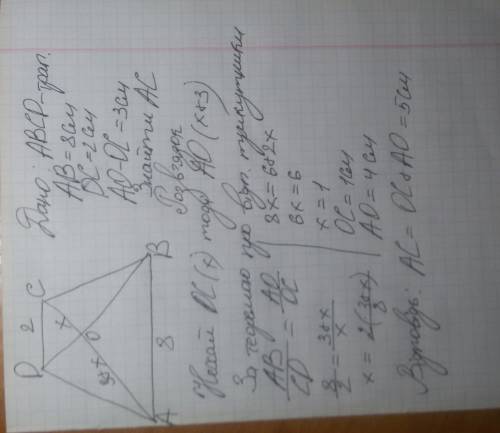 Дано: ABCD - трап.
AB = 8см
DC = 2см
AO - OC = 3см
знайти AC
D 2 C
x
O
3+x
A 8 B
Розв'язок
Нехай OC (x) тоді AO (x+3)
За теоремою про трикутники
AB/CD = AO/OC
8/2 = 3+x/x
x = 2(3+x)/8
8x = 6+2x
6x = 6
x = 1
OC = 1см
AO = 4см
Відповідь: AC = OC+AO = 5см